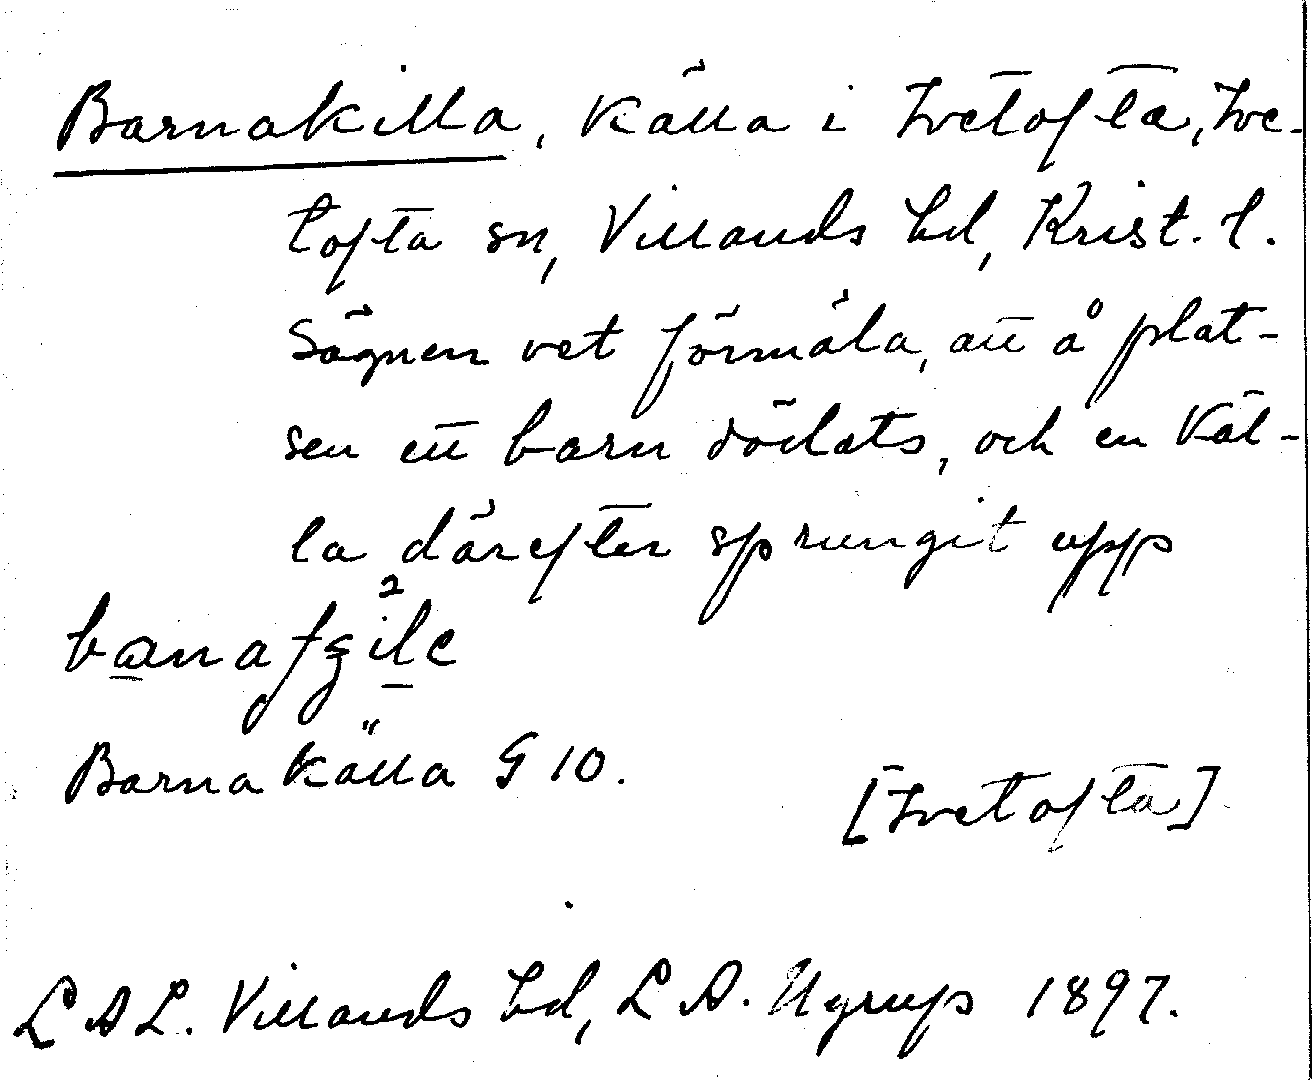 Barnakilla, källa i Ivetofta, Ive-
tofta sn, Villands hd, Krist. l.
Sägnen vet förmäla, att å plat-
sen ett barn dödats, och en käl-
la därefter sprungit upp
Barnakälla G 10.
[Ivetofta]
L A L. Villands hd, L A. Nyrup 1897.